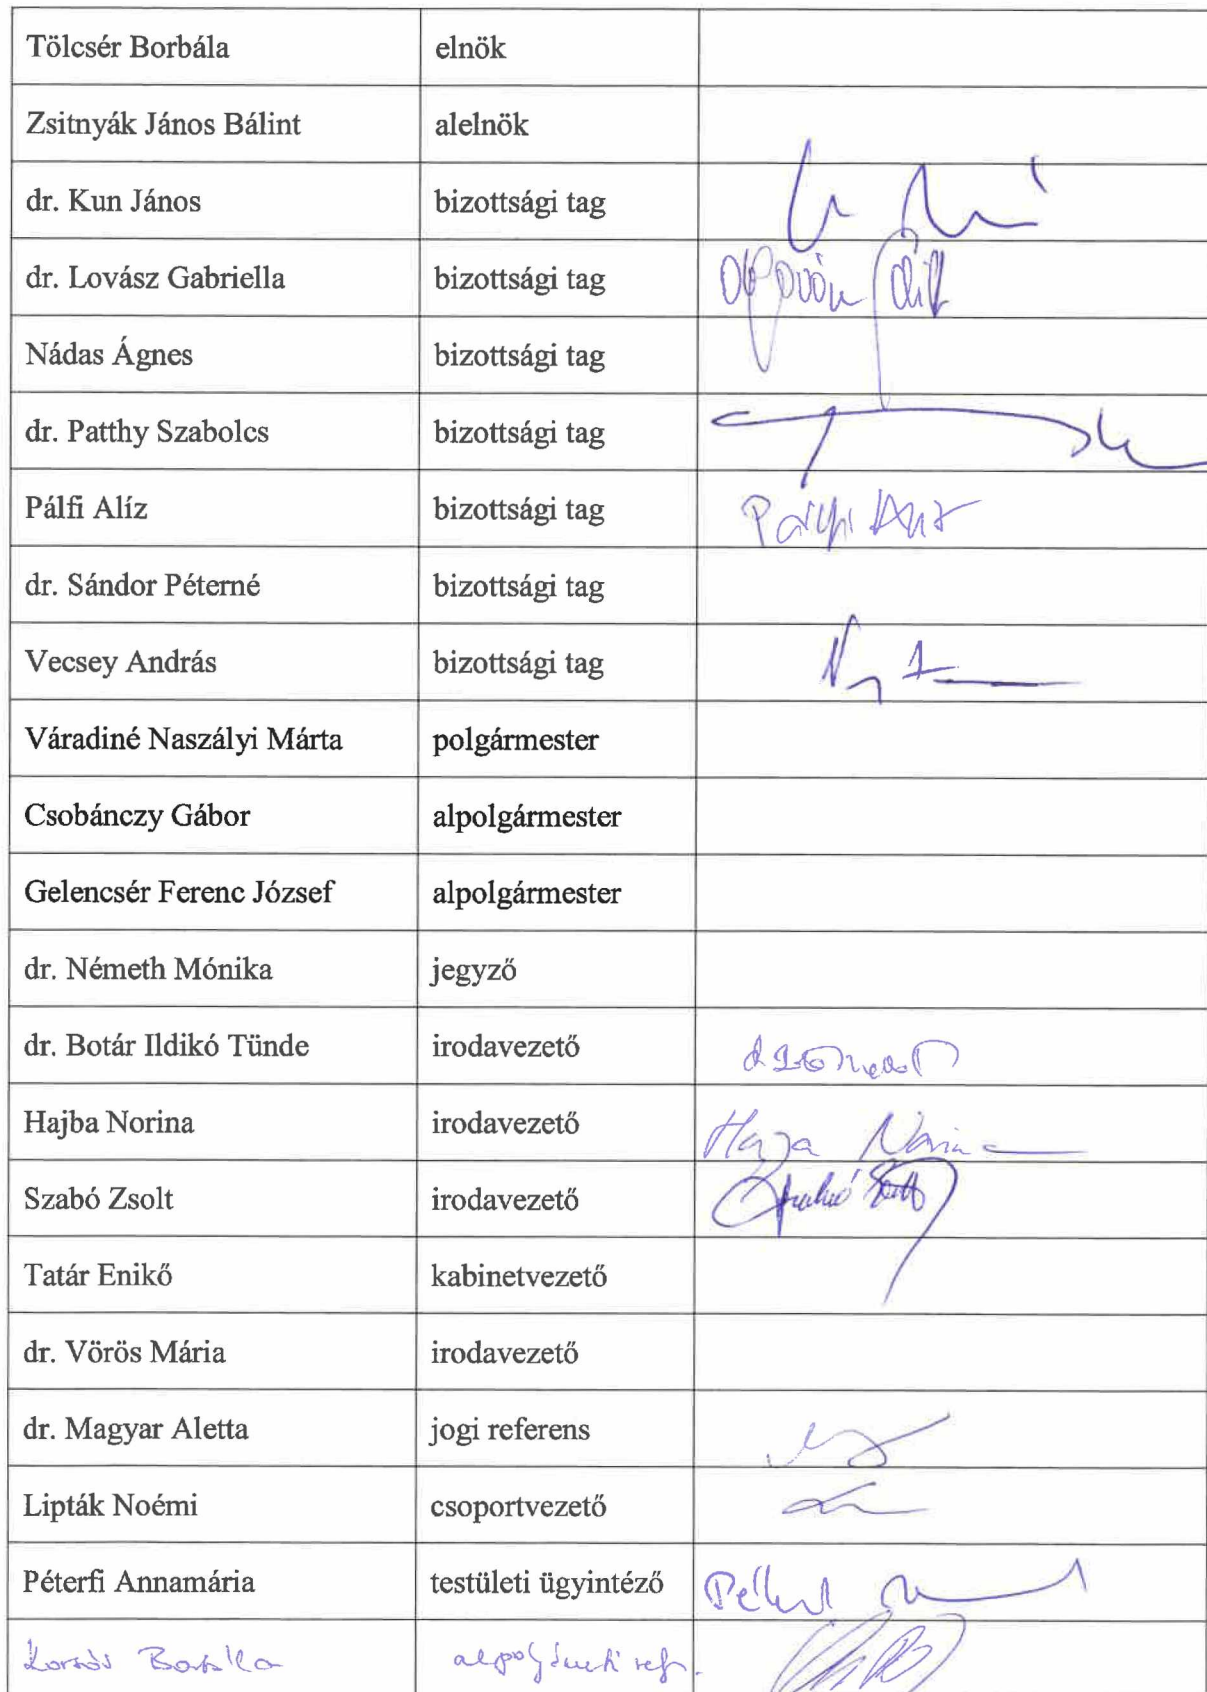 Tölcsér Borbála elnök
Zsitnyák János Bálint alelnök
dr. Kun János bizottsági tag
dr. Lovász Gabriella bizottsági tag
Nádas Ágnes bizottsági tag
dr. Patthy Szabolcs bizottsági tag
Pálfi Alíz bizottsági tag Pálfi Alíz
dr. Sándor Péterné bizottsági tag
Vecsey András bizottsági tag
Váradiné Naszályi Márta polgármester
Csobánczy Gábor alpolgármester
Gelencsér Ferenc József alpolgármester
dr. Németh Mónika jegyző
dr. Botár Ildikó Tünde irodavezető
Hajba Norina irodavezető
Szabó Zsolt irodavezető Szabó Zsolt
Tatár Enikő kabinetvezető
dr. Vörös Mária irodavezető
dr. Magyar Aletta jogi referens
Lipták Noémi csoportvezető
Péterfi Annamária testületi ügyintéző